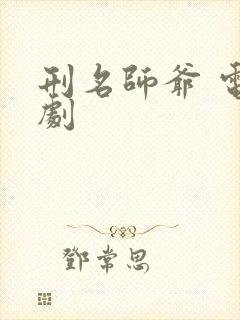 刑名師爺 電
劇
鄧常思